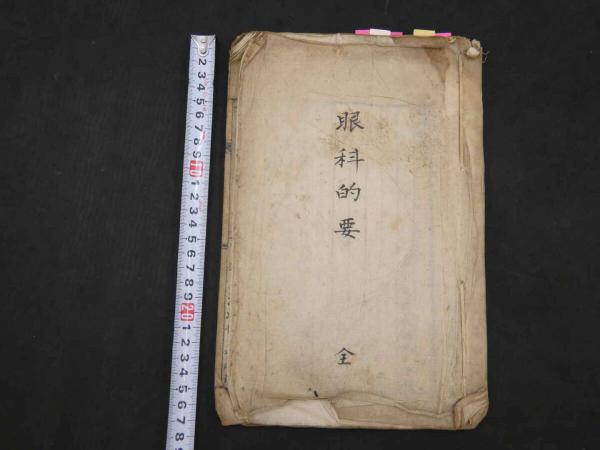 眼科的要
全
2 3 4 5 6 7 8 9 10 1 2 3 4 5 6 7 8 9 20 1 2 3 4 5 6 7 8 9